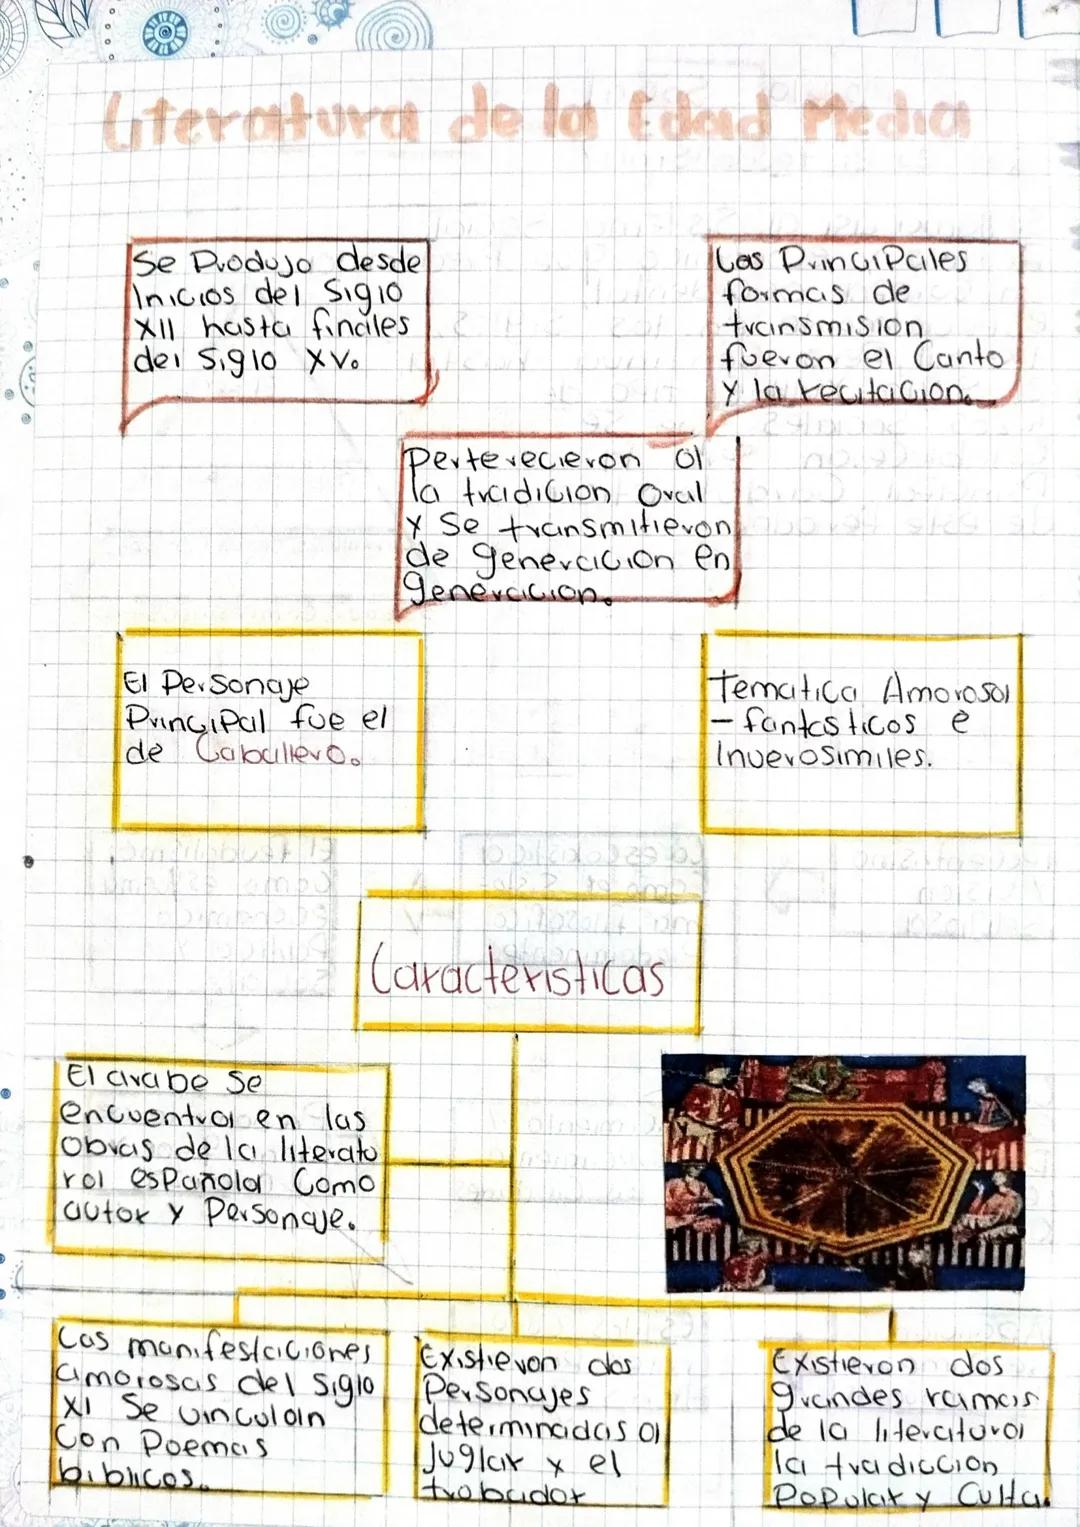 Literatura de la Edad Media
Se Produjo desde
Inicios del Siglo
XII hasta finales
del Siglo XV.
Las Principales
formas de
transmision
fueron el Canto
y la recitacion.
Perterecieron a
la tradicion Oral
y Se transmitieron
de generacion en
generacion.
El Personaje
Principal fue el
de Caballero.
Tematica Amorosa
- fantasticos e
Inverosimiles.
Caracteristicas
El arabe Se
encuentra en las
Obras de la literatu
ra española Como
autor y Personaje.
Las manifestaciones
amorosas del Siglo
XI Se vinculan
Con Poemas
biblicos.
Existieron dos
Personajes
determinadas a
Juglar y el
trobador
Existieron dos
grandes ramas
de la literatura
la tradiccion
Popular y Culta.